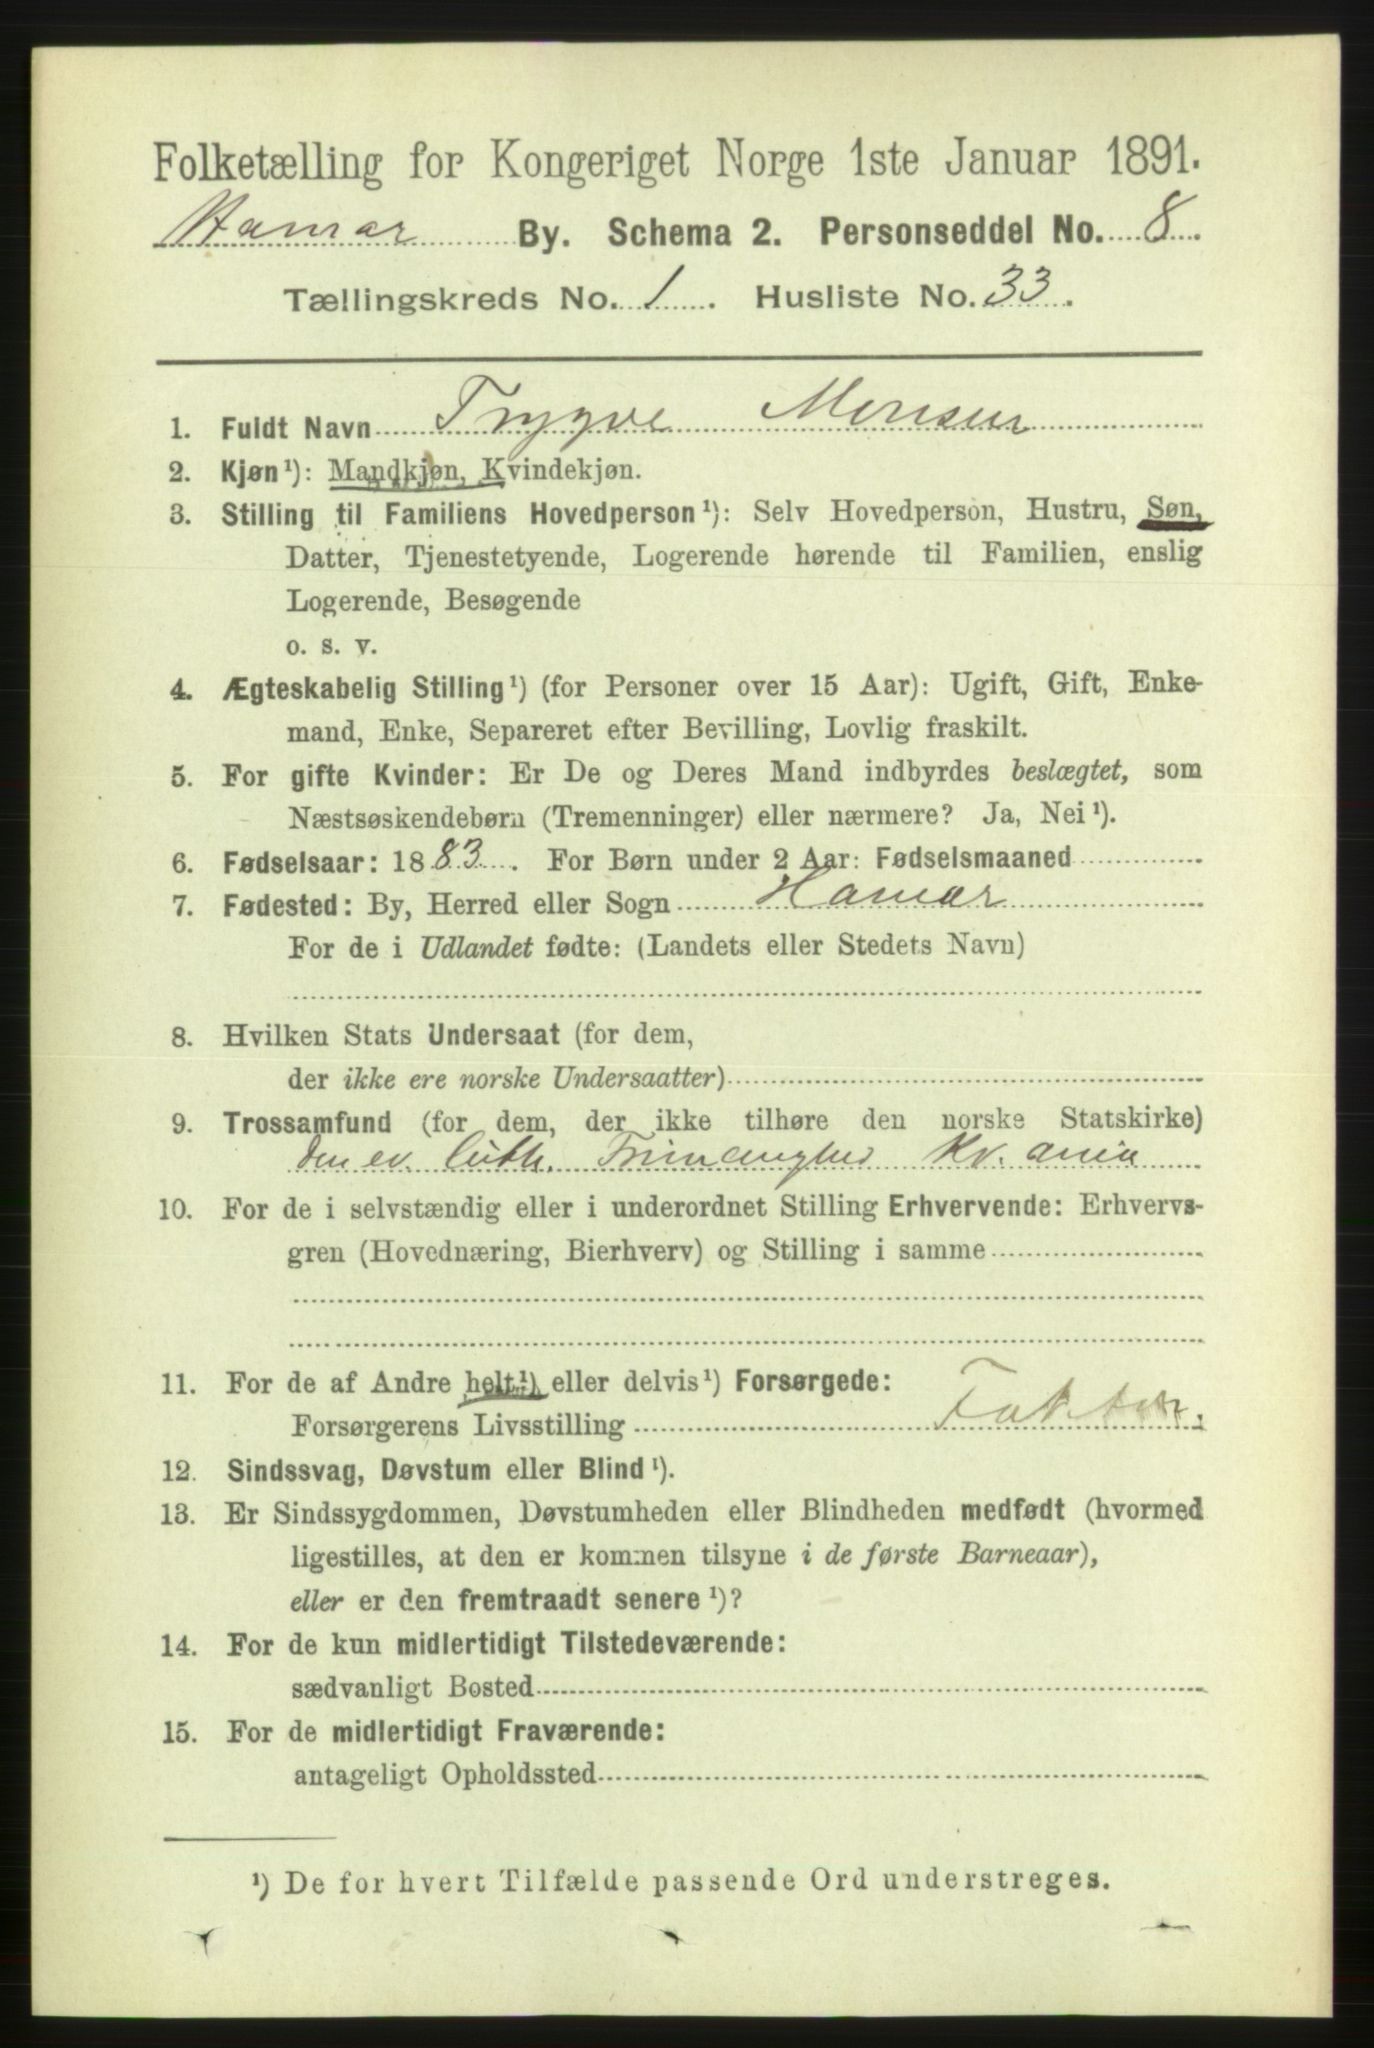 Folketælling for Kongeriget Norge 1ste Januar 1891.
Hamar By. Schema 2. Personseddel No. 8.
Tællingskreds No. 1. Husliste No. 33.
1. Fuldt Navn Trygve Monsen
2. Kjøn¹): Mandkjøn, Kvindekjøn.
3. Stilling til Familiens Hovedperson¹): Selv Hovedperson, Hustru, Søn,
Datter, Tjenestetyende, Logerende hørende til Familien, enslig
Logerende, Besøgende
o. s. v.
4. Ægteskabelig Stilling¹) (for Personer over 15 Aar): Ugift, Gift, Enke-
mand, Enke, Separeret efter Bevilling, Lovlig fraskilt.
5. For gifte Kvinder: Er De og Deres Mand indbyrdes beslægtet, som
Næstsøskendebørn (Tremenninger) eller nærmere? Ja, Nei¹).
6. Fødselsaar: 1883. For Børn under 2 Aar: Fødselsmaaned
7. Fødested: By, Herred eller Sogn Hamar
For de i Udlandet fødte: (Landets eller Stedets Navn)
8. Hvilken Stats Undersaat (for dem,
der ikke ere norske Undersaatter)
9. Trossamfund (for dem, der ikke tilhøre den norske Statskirke)
den ev. luth. Kr. ania
10. For de i selvstændig eller i underordnet Stilling Erhvervende: Erhvervs-
gren (Hovednæring, Bierhverv) og Stilling i samme
11. For de af Andre helt¹) eller delvis¹) Forsørgede:
Forsørgerens Livsstilling Faktor,
12. Sindssvag, Døvstum eller Blind¹).
13. Er Sindssygdommen, Døvstumheden eller Blindheden medfødt (hvormed
ligestilles, at den er kommen tilsyne i de første Barneaar),
eller er den fremtraadt senere¹)?
14. For de kun midlertidigt Tilstedeværende:
sædvanligt Bosted
15. For de midlertidigt Fraværende:
antageligt Opholdssted
¹) De for hvert Tilfælde passende Ord understreges.